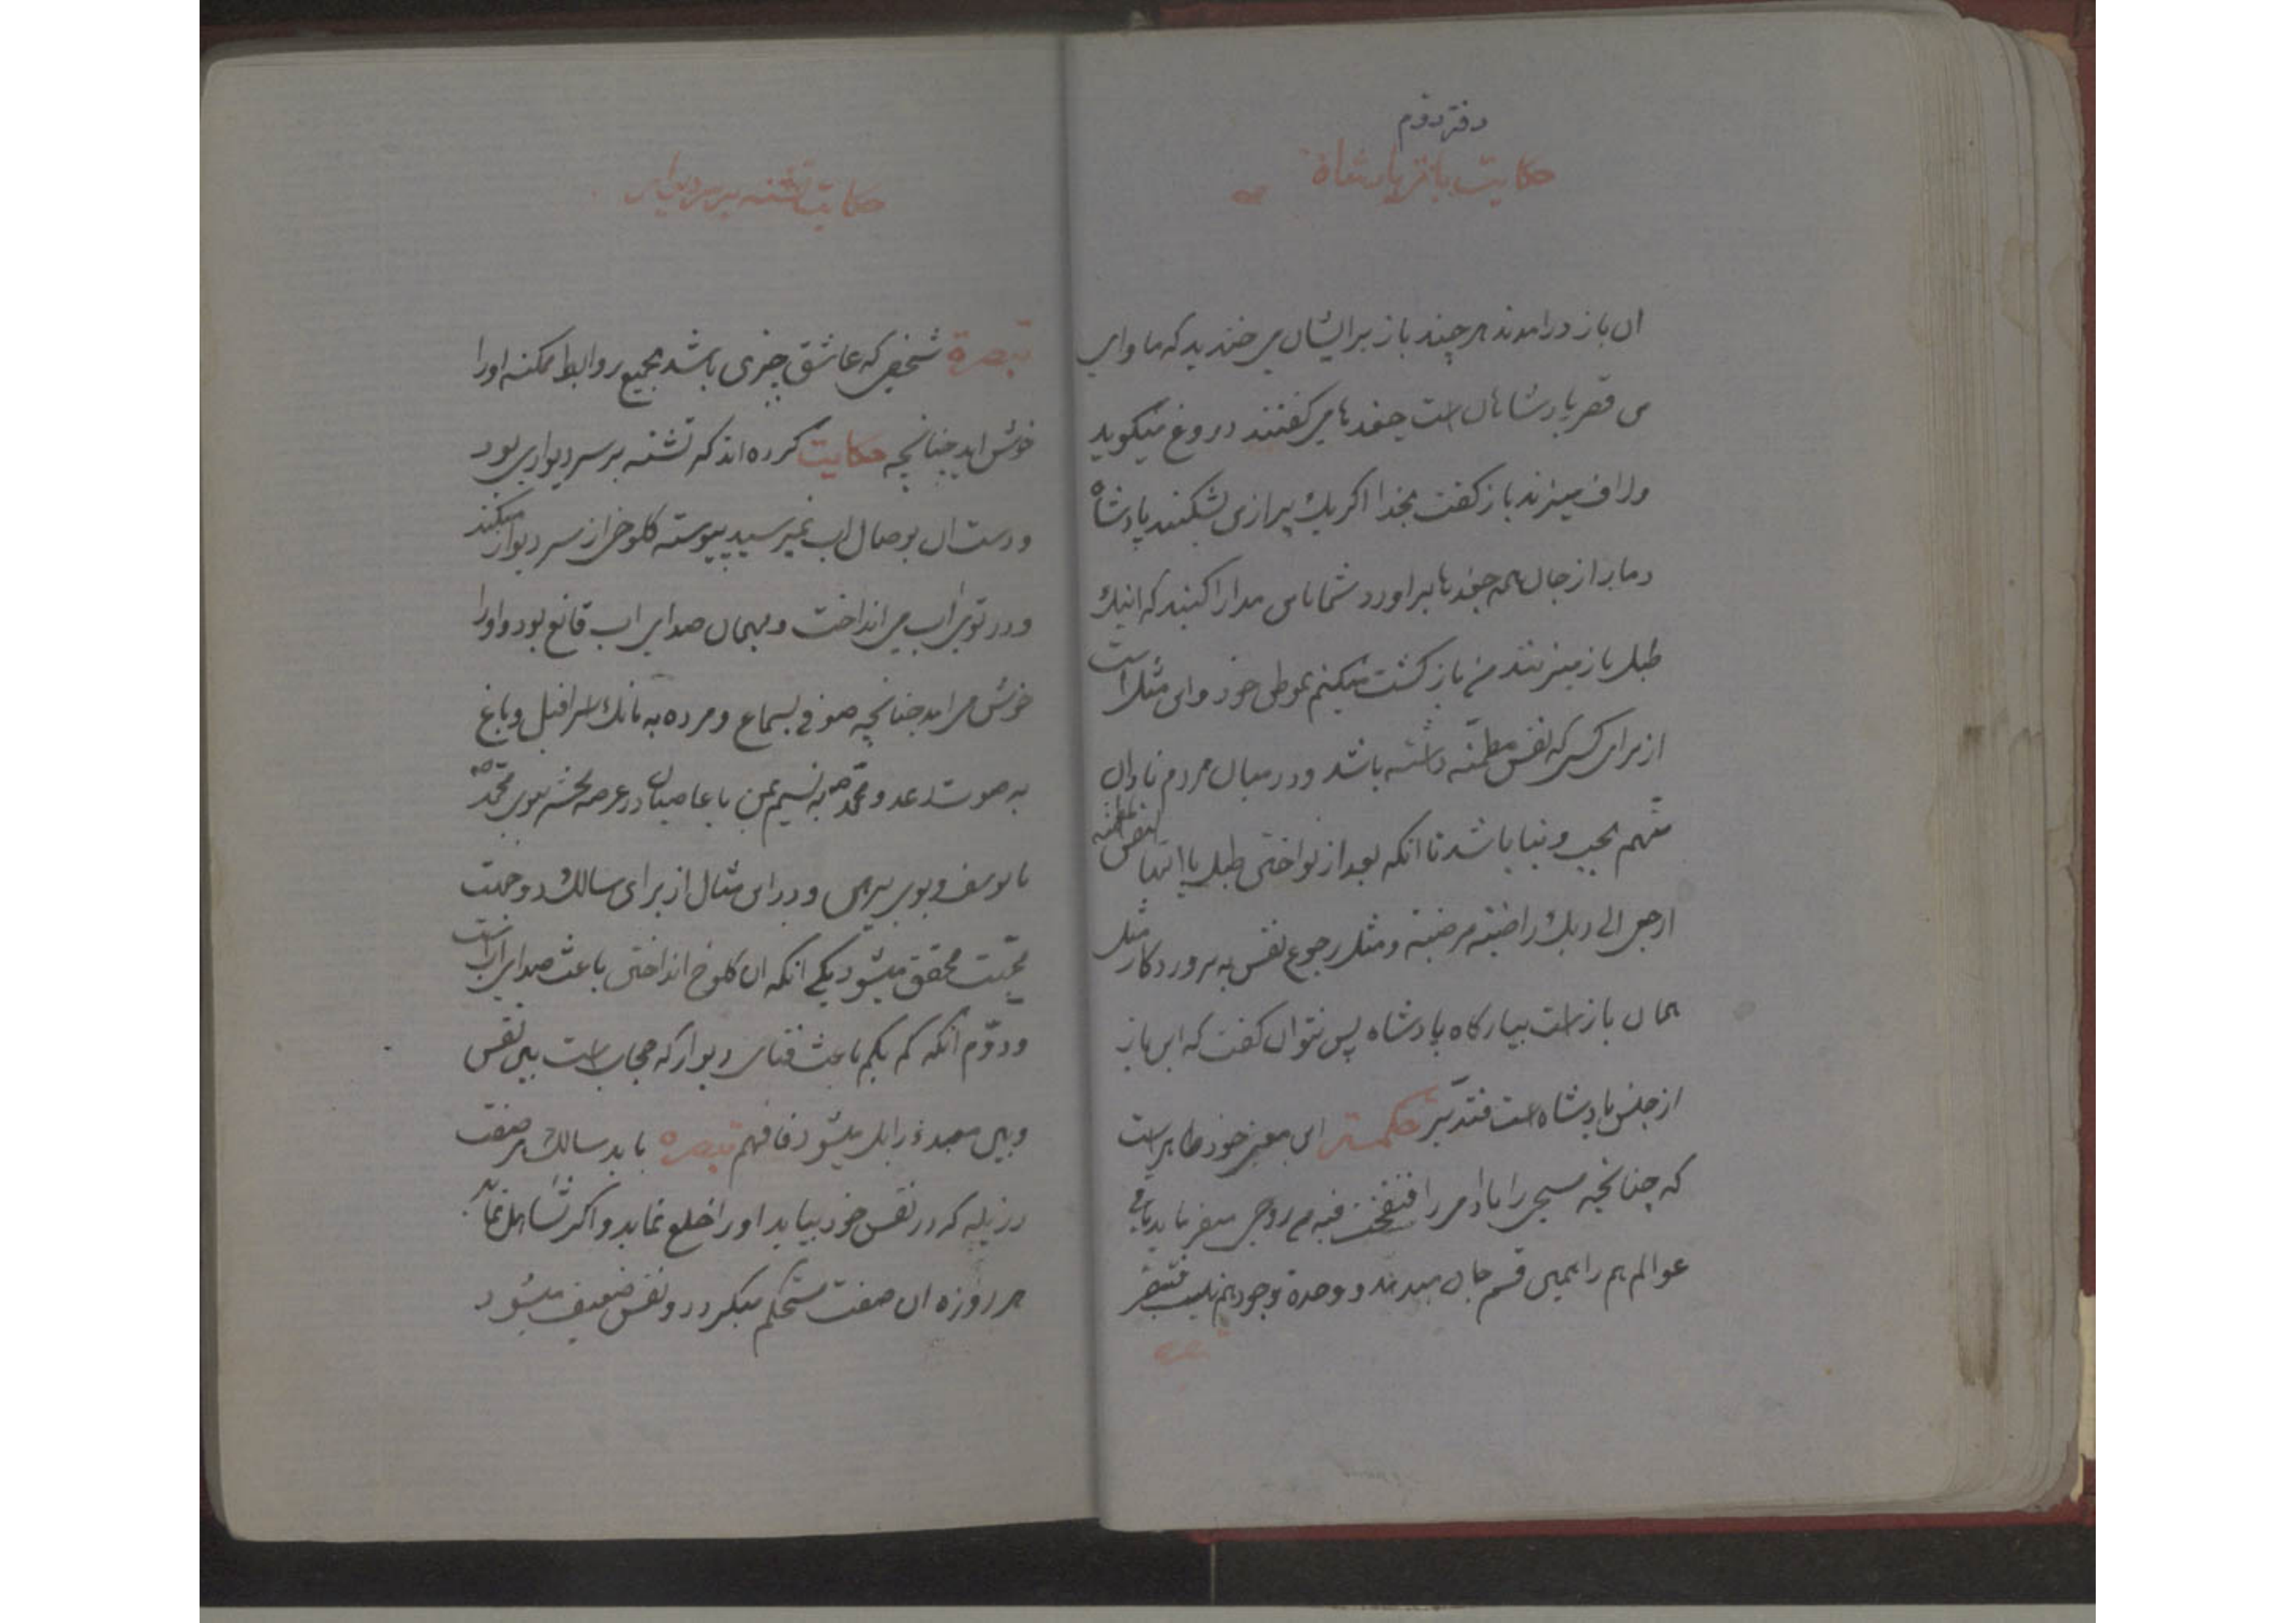 دفتر دوم
حکایت باز پادشاه
ان باز درامدند هر چند باز برایشان می خندید که ماوای
من قصر پادشاهان است جغدها می کفتند دروغ میکوید
ولاف میزند باز کفت بخدا اکر یک پر از من بشکنند پادشاه
دمار از جان همه جغدها براورد شما با من مدارا کنید که اینک
طبل باز میزنند من باز کشت میکنم بموطن خود و این مثل است
از برای کسی که نفس مطمئنه داشته باشد و در میان مردم نادان
متهم بحب دنیا باشد تا انکه بعد از نواختن طبل یا ایتها النفس المطمئنه
ارجعی الی ربک راضیة مرضیة و مثل رجوع نفس به پروردکار مثل
همان باز است ببارکاه پادشاه پس نتوان کفت که این باز
از جنس پادشاه است فتدبر این معنی خود ظاهر است
که چنانچه مسیحی را با ادمی را فنفخت فیه من روحی
عوالم هم را همین قسم جان میدهد و وحدة وجود هم نیست
حکایت تشنه بر سر دیوار
تبصرة شخصی که عاشق چیزی باشد بجمیع روابط ممکنه اورا
خوش اید چنانچه حکایت کرده اند که تشنه بر سر دیواری بود
و دست ان بوصال اب نمیرسید پیوسته کلوخی از سر دیوار میکند
و در توی اب می انداخت و بهمان صدای اب قانع بود و اورا
خوش می امد چنانچه صوفی بسماع و مرده به بانک اسرافیل و باغ
به صوت رعد و محمد ص به نسیم یمن یا عاصیان در عرصه محشر ببوی محمد ص
یا یوسف و بوی پیرهن و در این مثال از برای سالک دو جهت
محبت محقق میشود یکی انکه ان کلوخ انداختن باعث صدای اب است
و دوم انکه کم بکم باعث فنای دیوار که حجاب است بین نفس
و بین معبد زایل میشود فافهم تبصره باید سالک هر صفت
رذیله که در نفس خود بیابد اورا خلع نماید و اکر تساهل نماید
هر روزه ان صفت مستحکم میکردد و نفس ضعیف میشود